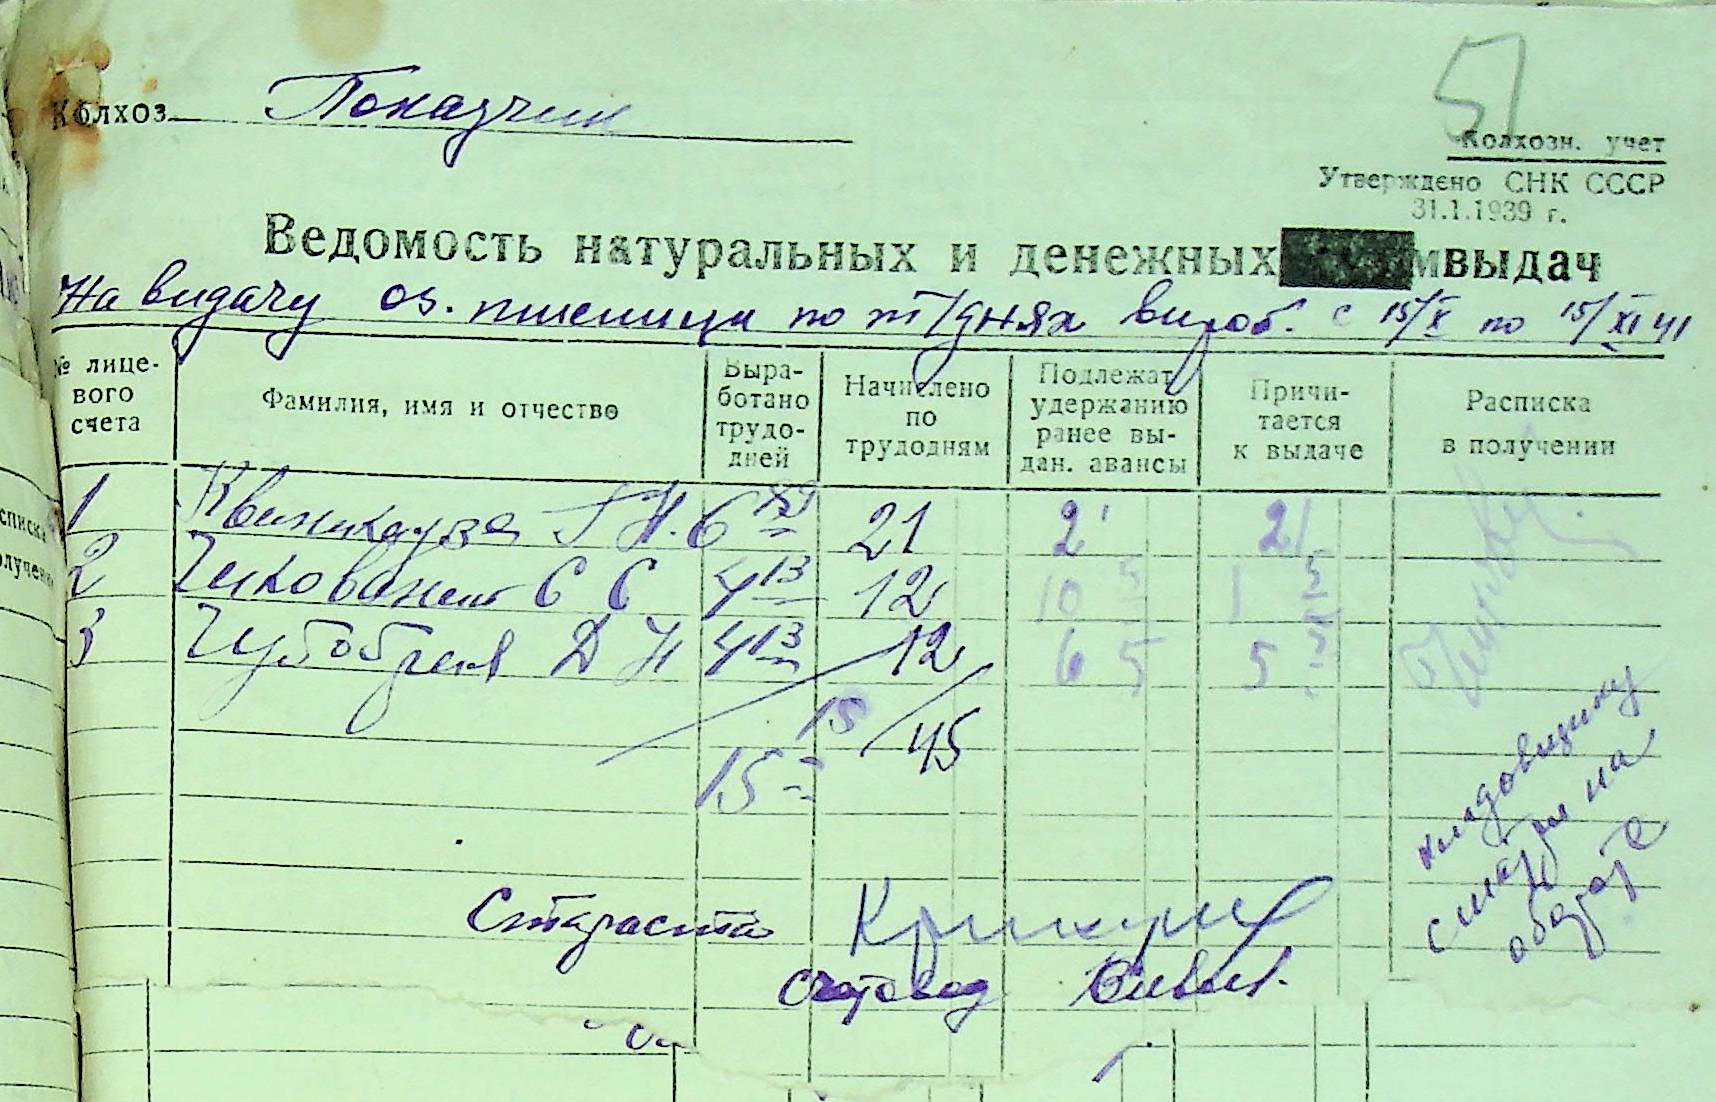 51
Колхоз Показчик
Колхозн. учет
Утверждено СНК СССР
31.1.1939 г.
Ведомость натуральных и денежных выдач
На видачу оз. пшеници по т/днях вироб. с 15/X по 15/XI 41
№ лице-вого счета Фамилия, имя и отчество Выра-ботано трудо-дней Начислено по трудодням Подлежат удержанию ранее вы-дан. авансы Причи-тается к выдаче Расписка в получении
1 Г Н. 6 21 2 21
2 Чиковани С С 4 13 12 10 5 1 5
3 Д Н 4 13 12 6 5 5
15 45
15
кладовщику
смотри на
обороте
Стараста
Счетовод